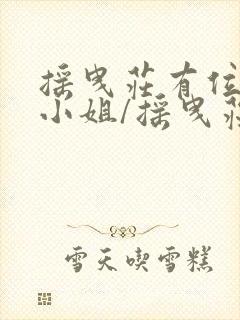 採曳莊有位
小姐/採曳莊
雪天喫雪糕